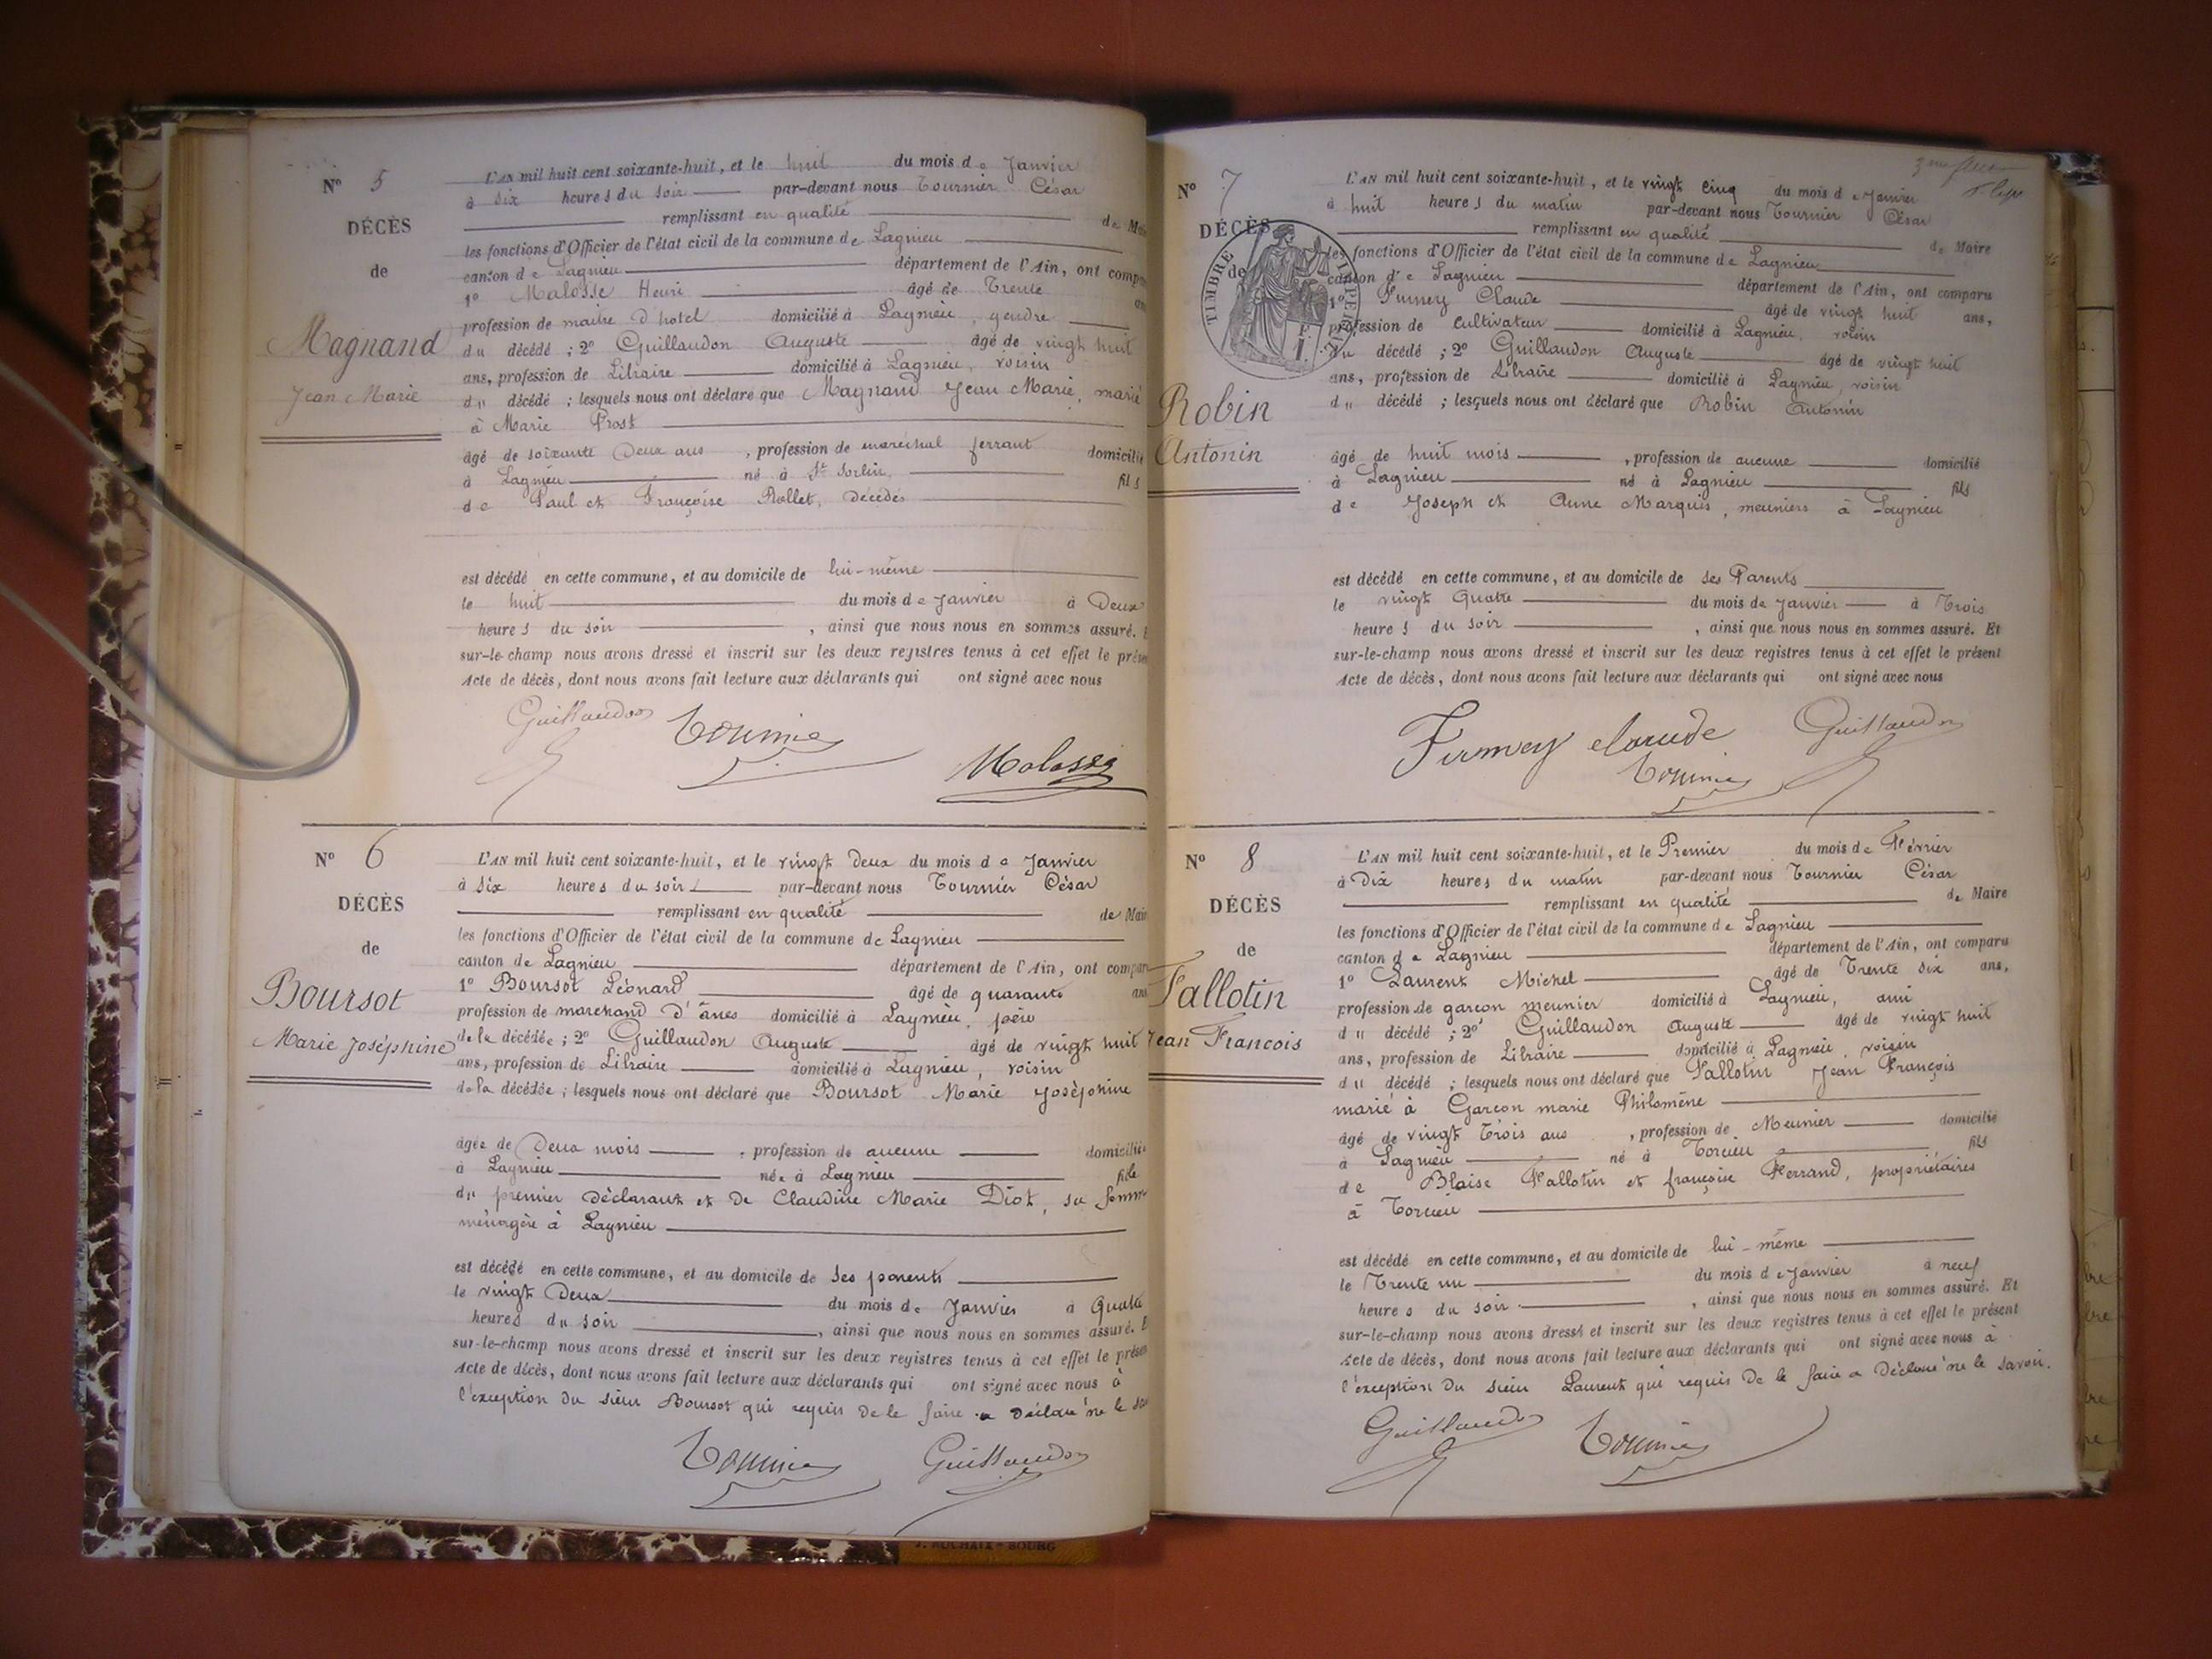 N° 5
DÉCÈS
de
Magnand
Jean Marie
L'AN mil huit cent soixante-huit, et le huit du mois de Janvier
à six heures du soir par-devant nous Tournier César
remplissant en qualité de
les fonctions d'Officier de l'état civil de la commune de Lagnieu
canton de Lagnieu département de l'Ain, ont
1° Malosse Henri âgé de Trente
profession de maitre d'hotel domicilié à Lagnieu, gendre
du décédé ; 2° Guillaudon Auguste âgé de vingt huit
ans, profession de Libraire domicilié à Lagnieu, voisin
du décédé ; lesquels nous ont déclaré que Magnand Jean Marie, marié
à Marie Prost
âgé de soixante Deux ans, profession de maréchal ferrant domicilié
à Lagnieu né à St Sorlin, fils
de Paul et Françoise Rollet, décédés
est décédé en cette commune, et au domicile de lui-même
le huit du mois de Janvier à Deux
heures du soir, ainsi que nous nous en sommes assuré.
sur-le-champ nous avons dressé et inscrit sur les deux registres tenus à cet effet le
Acte de décès, dont nous avons fait lecture aux déclarants qui ont signé avec nous
Guillaudon Tournier
Malosse
N° 6
DÉCÈS
de
Boursot
Marie Joséphine
L'AN mil huit cent soixante-huit, et le vingt Deux du mois de Janvier
à six heures du soir par-devant nous Tournier César
remplissant en qualité de
les fonctions d'Officier de l'état civil de la commune de Lagnieu
canton de Lagnieu département de l'Ain, ont
1° Boursot Léonard âgé de quarante
profession de marchand d'ânes domicilié à Lagnieu, père
de la décédée ; 2° Guillaudon Auguste âgé de vingt huit
ans, profession de Libraire domicilié à Lagnieu, voisin
de la décédée ; lesquels nous ont déclaré que Boursot Marie Joséphine
âgée de Deux mois, profession de aucune domiciliée
à Lagnieu née à Lagnieu fille
du premier déclarant et de Claudine Marie Diot, sa
ménagère à Lagnieu
est décédé en cette commune, et au domicile de ses parents
le vingt Deux du mois de Janvier à Quatre
heures du soir, ainsi que nous nous en sommes assuré.
sur-le-champ nous avons dressé et inscrit sur les deux registres tenus à cet effet le
Acte de décès, dont nous avons fait lecture aux déclarants qui ont signé avec nous à
l'exception du sieur Boursot qui requis de le faire a déclaré ne le
Tournier Guillaudon
J. ROCHAIX - BOURG
N° 7
DÉCÈS
de
TIMBRE IMPÉRIAL
Robin
Antonin
L'AN mil huit cent soixante-huit, et le vingt cinq du mois de Janvier
à huit heures du matin par-devant nous Tournier César
remplissant en qualité de Maire
les fonctions d'Officier de l'état civil de la commune de Lagnieu
canton de Lagnieu département de l'Ain, ont comparu
1° Claude âgé de vingt huit ans,
profession de cultivateur domicilié à Lagnieu, voisin
du décédé ; 2° Guillaudon Auguste âgé de vingt huit
ans, profession de Libraire domicilié à Lagnieu, voisin
du décédé ; lesquels nous ont déclaré que Robin Antonin
âgé de huit mois, profession de aucune domicilié
à Lagnieu né à Lagnieu fils
de Joseph et Anne Marquis, meuniers à Lagnieu
est décédé en cette commune, et au domicile de ses Parents
le vingt Quatre du mois de Janvier à Trois
heures du soir, ainsi que nous nous en sommes assuré. Et
sur-le-champ nous avons dressé et inscrit sur les deux registres tenus à cet effet le présent
Acte de décès, dont nous avons fait lecture aux déclarants qui ont signé avec nous
claude Guillaudon
Tournier
N° 8
DÉCÈS
de
Fallotin
Jean Francois
L'AN mil huit cent soixante-huit, et le Premier du mois de Février
à Dix heures du matin par-devant nous Tournier César
remplissant en qualité de Maire
les fonctions d'Officier de l'état civil de la commune de Lagnieu
canton de Lagnieu département de l'Ain, ont comparu
1° Laurent Michel âgé de Trente six ans,
profession de garçon meunier domicilié à Lagnieu, ami
du décédé ; 2° Guillaudon Auguste âgé de vingt huit
ans, profession de Libraire domicilié à Lagnieu, voisin
du décédé ; lesquels nous ont déclaré que Fallotin Jean François
marié à Garcon marie Philomène
âgé de vingt Trois ans, profession de Meunier domicilié
à Lagnieu né à Torcieu fils
de Blaise Fallotin et françoise Ferrand, propriétaires
à Torcieu
est décédé en cette commune, et au domicile de lui-même
le Trente un du mois de Janvier à neuf
heures du soir, ainsi que nous nous en sommes assuré. Et
sur-le-champ nous avons dressé et inscrit sur les deux registres tenus à cet effet le présent
Acte de décès, dont nous avons fait lecture aux déclarants qui ont signé avec nous à
l'exception du sieur Laurent qui requis de le faire a déclaré ne le savoir.
Guillaudon Tournier